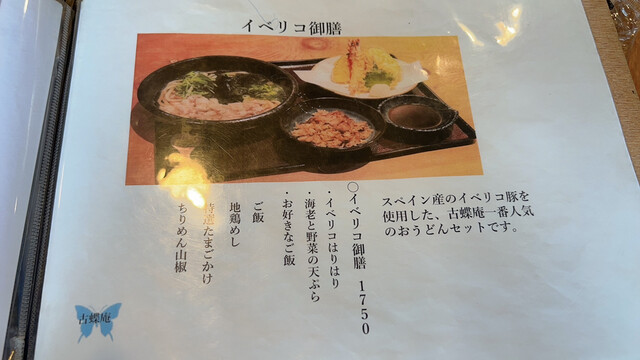 イベリコ御膳
スペイン産のイベリコ豚を
使用した、古蝶庵一番人気
のおうどんセットです。
〇イベリコ御膳 1750
・イベリコはりはり
・海老と野菜の天ぷら
・お好きなご飯
ご飯
地鶏めし
たまごかけ
ちりめん山椒
古蝶庵